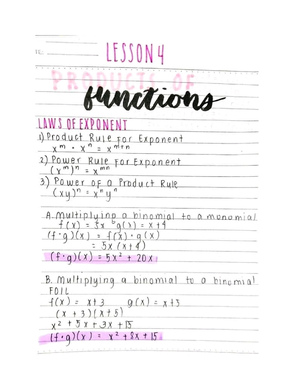 LESSON 4
PRODUCTS OF
functions
LAWS OF EXPONENT
1) Product Rule for Exponent
xᵐ • xⁿ = xᵐ⁺ⁿ
2) Power Rule for Exponent
(xᵐ)ⁿ = xᵐⁿ
3) Power of a Product Rule
(xy)ⁿ = xⁿyⁿ
A. Multiplying a binomial to a monomial
f(x) = 5x g(x) = x+4
(f•g)(x) = f(x) • g(x)
= 5x (x+4)
(f•g)(x) = 5x² + 20x
B. Multiplying a binomial to a binomial
FOIL
f(x) = x+3 g(x) = x+5
(x+3)(x+5)
x² + 5x + 3x + 15
(f•g)(x) = x² + 8x + 15